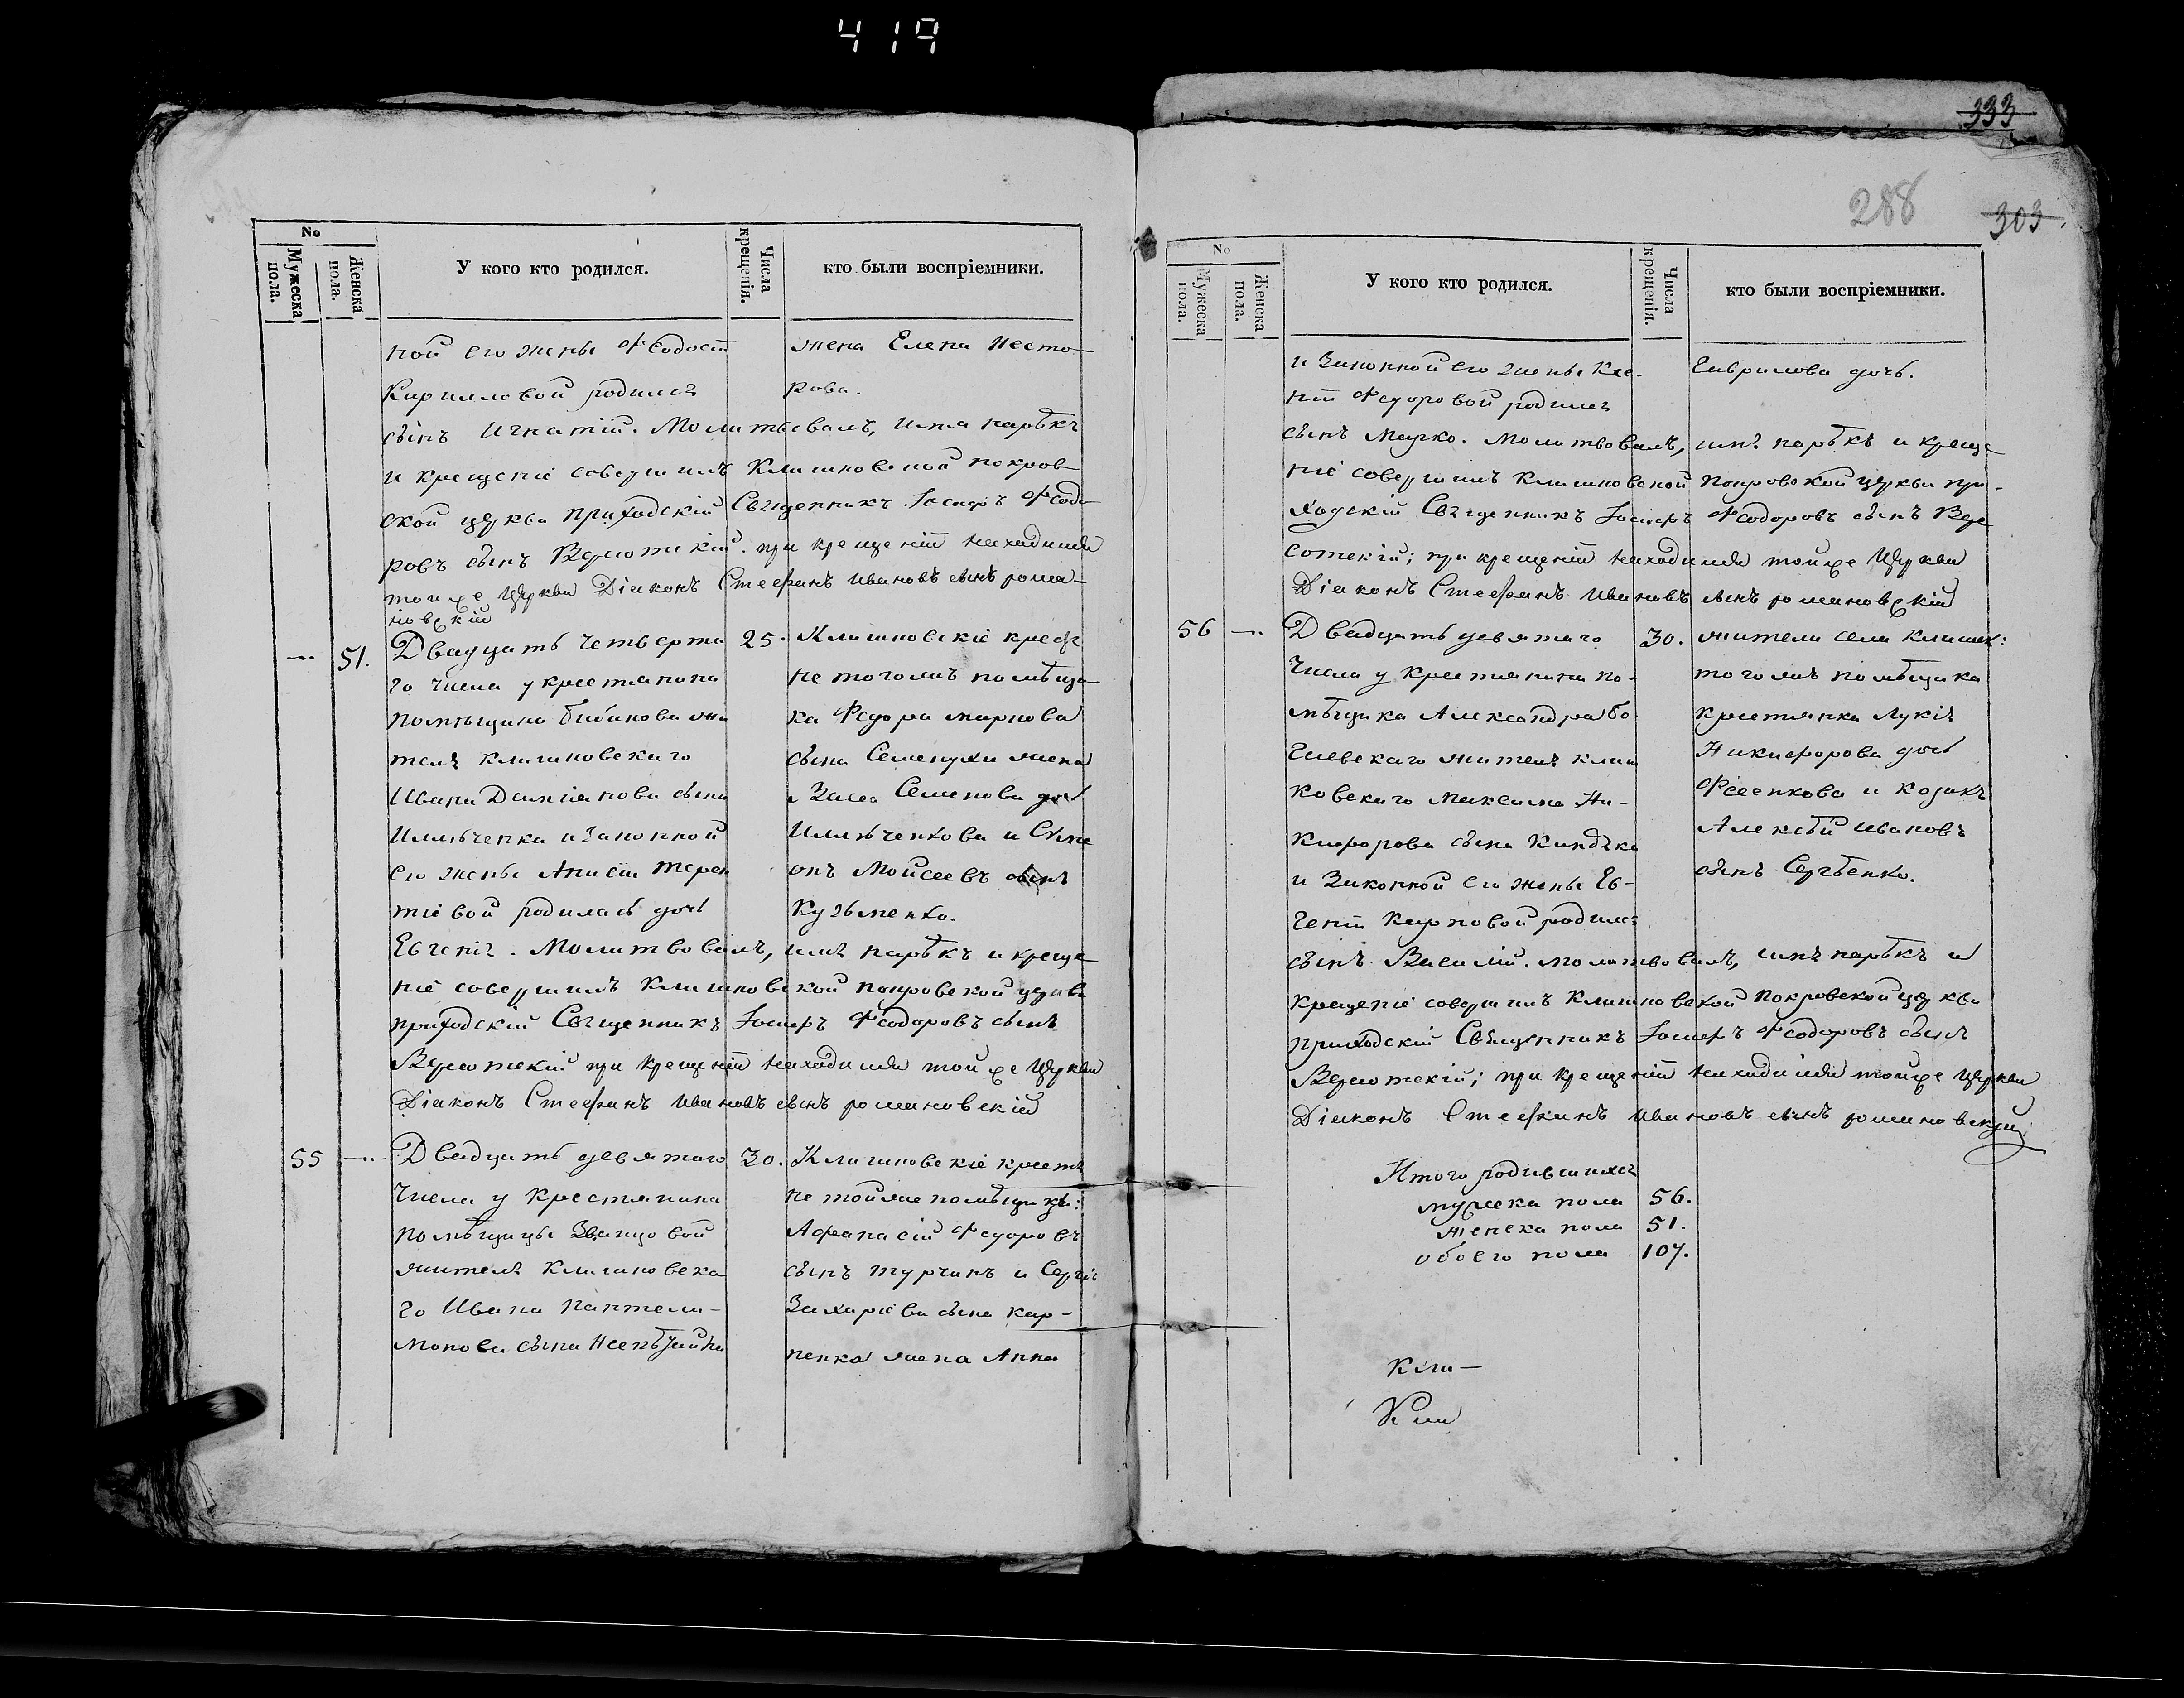 419
333
288
303
No
Мужеска пола.
Женска пола.
У кого кто родился.
Числа крещенія.
кто были воспріемники.
ной его жены Феодосіи
Кирилловой родился
сынъ Игнатій. Молитвовалъ, имя нарѣкъ
и крещеніе совершилъ Клишковской покров
ской церкви приходскій Священникъ Іосифъ Феодо
ровъ сынъ при крещеніи находился
тойже Церкви Діаконъ Стефанъ Ивановъ сынъ рома-
новскій
жена Елена Несто-
рова.
51. Двадцать четверта
го числа у крестянина
помѣщика Бибикова жи
теля клишковского
Ивана Даміанова сына
Ильѣченка и Законной
его жены Анисіи Терен
тіевой родилась дочь
Евгенія. Молитвовалъ, имя нарѣкъ и креще
ніе совершилъ Клишковской покровской церкви
приходскій Священникъ Іосифъ Феодоровъ сынъ
при крещеніи находился тойже Церкви
Діаконъ Стефанъ Ивановъ сынъ романовскій
25. Клишковскіе крестя
не тогожъ помѣщи
ка Федора миронова
сына Семенухи жена
Васса Семенова дочь
Ильѣченкова и Симе
онъ Мойсеевъ сынъ
Кузьменко.
55 Двадцать девятого
числа у Крестянина
помѣщицы
жителя Клишковска
го Ивана Пантели-
монова сына
30. Клишковскіе крестя
не тойже помѣщицы:
Афанасій Федоровъ
сынъ турчинъ и Сергія
Захаріева сына кар-
пенка жена Анна
No
Мужеска пола.
Женска пола.
У кого кто родился.
Числа крещенія.
кто были воспріемники.
и Законной его жены Ксе-
ніи Федоровой родился
сынъ Марко. Молитвовалъ, имя нарѣкъ и креще
ніе совершилъ Клишковской покровской церкви при-
ходскій Священникъ Іосифъ Феодоровъ сынъ
при крещеніи находился тойже Церкви
Діаконъ Стефанъ Ивановъ сынъ романовскій
Гаврилова дочь.
56 Двадцать девятаго
числа у Крестянина по-
мѣщика Александра
жителя клиш
ковскаго Максима Ни-
кифорова сына
и Законной его жены Ев-
геніи Карповой родился
сынъ Василій. молитвовалъ, имя нарѣкъ и
крещеніе совершилъ Клишковской Покровской церкви
приходскій Священникъ Іосифъ Феодоровъ сынъ
при крещеніи находился тойже Церкви
Діаконъ Стефанъ Ивановъ сынъ романовскій
30. жители села клишк:
тогожъ помѣщика
крестянка Лукія
Никифорова дочь
и козакъ
Алексѣй Ивановъ
сынъ Сергѣенко.
Итого родившихся
мужска пола 56.
женска пола 51.
обоего пола 107.
Кли-
Кли